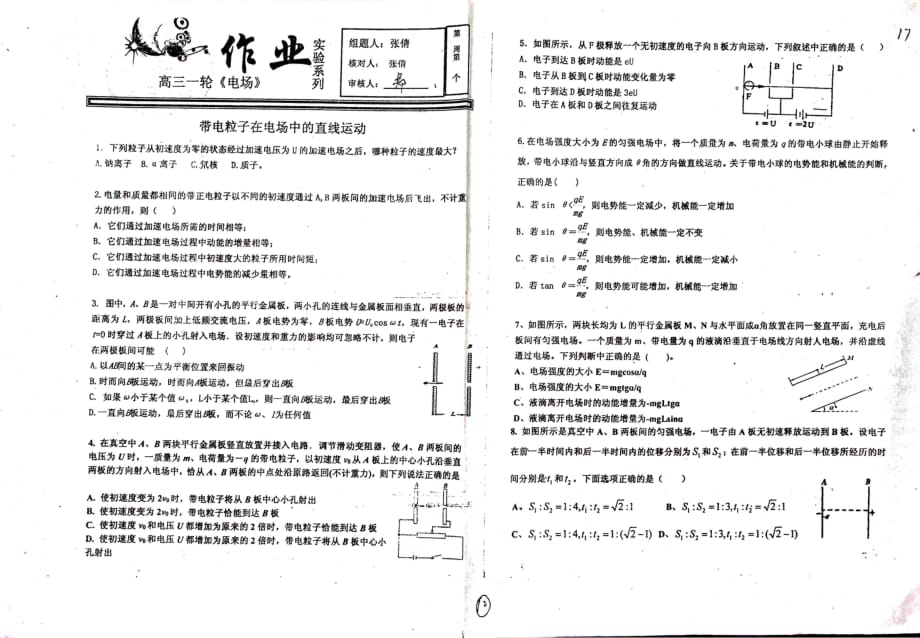 作业
实验系列
高三一轮《电场》
组题人：张倩
核对人：张倩
审核人：
第 周第 个
17
带电粒子在电场中的直线运动
1．下列粒子从初速度为零的状态经过加速电压为 U 的加速电场之后，哪种粒子的速度最大？
A.钠离子 B.α离子 C.氘核 D.质子。
2.电量和质量都相同的带正电粒子以不同的初速度通过 A,B 两板间的加速电场后飞出，不计重
力的作用，则（ ）
A．它们通过加速电场所需的时间相等；
B．它们通过加速电场过程中动能的增量相等；
C．它们通过加速电场过程中初速度大的粒子所用时间短；
D．它们通过加速电场过程中电势能的减少量相等。
3．图中，A、B是一对中间开有小孔的平行金属板，两小孔的连线与金属板面相垂直，两极板的
距离为 L，两极板间加上低频交流电压，A板电势为零，B板电势 U=U₀cosωt，现有一电子在
t=0时穿过A板上的小孔射入电场．设初速度和重力的影响均可忽略不计，则电子
在两极板间可能（ ）
A.以AB间的某一点为平衡位置来回振动
B.时而向B板运动，时而向A板运动，但最后穿出B板
C．如果ω小于某个值ω₀，L小于某个值L₀，则一直向B板运动，最后穿出B板
D.一直向B板运动，最后穿出B板，而不论ω、l为任何值
4．在真空中 A、B 两块平行金属板竖直放置并接入电路．调节滑动变阻器，使 A、B 两板间的
电压为 U 时，一质量为 m、电荷量为-q 的带电粒子，以初速度 v0 从 A 板上的中心小孔沿垂直
两板的方向射入电场中，恰从 A、B 两板的中点处沿原路返回(不计重力)，则下列说法正确的是
A．使初速度变为 2v0 时，带电粒子将从 B 板中心小孔射出
B．使初速度变为 2v0 时，带电粒子恰能到达 B 板
C．使初速度 v0 和电压 U 都增加为原来的 2 倍时，带电粒子恰能到达 B 板
D．使初速度 v0 和电压 U 都增加为原来的 2 倍时，带电粒子将从 B 板中心小
孔射出
5．如图所示，从 F 极释放一个无初速度的电子向 B 板方向运动，下列叙述中正确的是（ ）
A．电子到达 B 板时动能是 eU
B．电子从 B 板到达 C 板时动能变化量为零
C．电子到达 D 板时动能是 3eU
D．电子在 A 板和 D 板之间往复运动
6.在电场强度大小为 E 的匀强电场中，将一个质量为 m、电荷量为 q 的带电小球由静止开始释
放，带电小球沿与竖直方向成 θ 角的方向做直线运动。关于带电小球的电势能和机械能的判断，
正确的是( )
A．若 sin θ<qE/mg，则电势能一定减少，机械能一定增加
B．若 sin θ=qE/mg，则电势能、机械能一定不变
C．若 sin θ=qE/mg，则电势能一定增加，机械能一定减小
D．若 tan θ=qE/mg，则电势能可能增加，机械能一定增加
7、如图所示，两块长均为 L 的平行金属板 M、N 与水平面成α角放置在同一竖直平面，充电后
板间有匀强电场。一个质量为 m、带电量为 q 的液滴沿垂直于电场线方向射人电场，并沿虚线
通过电场。下列判断中正确的是（ ）。
A、电场强度的大小 E＝mgcosα/q
B、电场强度的大小 E＝mgtgα/q
C、液滴离开电场时的动能增量为-mgLtgα
D、液滴离开电场时的动能增量为-mgLsinα
8．如图所示是真空中 A、B 两板间的匀强电场，一电子由 A 板无初速释放运动到 B 板，设电子
在前一半时间内和后一半时间内的位移分别为S₁和S₂；在前一半位移和后一半位移所经历的时
间分别是t₁和t₂，下面选项正确的是（ ）
A、S₁:S₂=1:4,t₁:t₂=√2:1 B、S₁:S₂=1:3,t₁:t₂=√2:1
C、S₁:S₂=1:4,t₁:t₂=1:(√2-1) D、S₁:S₂=1:3,t₁:t₂=1:(√2-1)